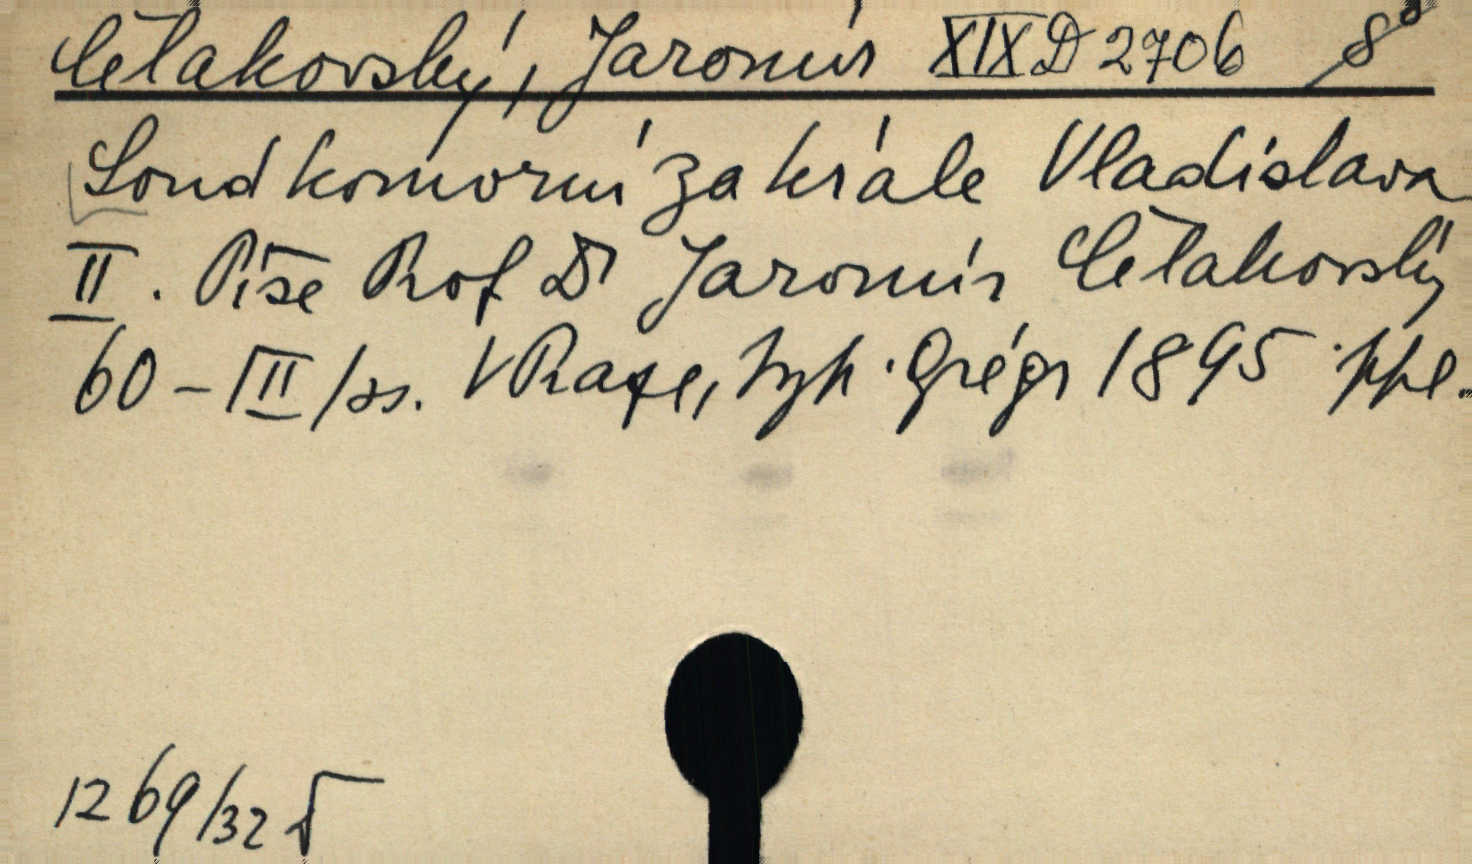 Čelakovský, Jaromír XIX D 2706 8°
Soud komorní za krále Vladislava
II. Píše Prof Dr Jaromír Čelakovský
60 – III / ss. V Praze, typ. Grégr 1895
1269/32